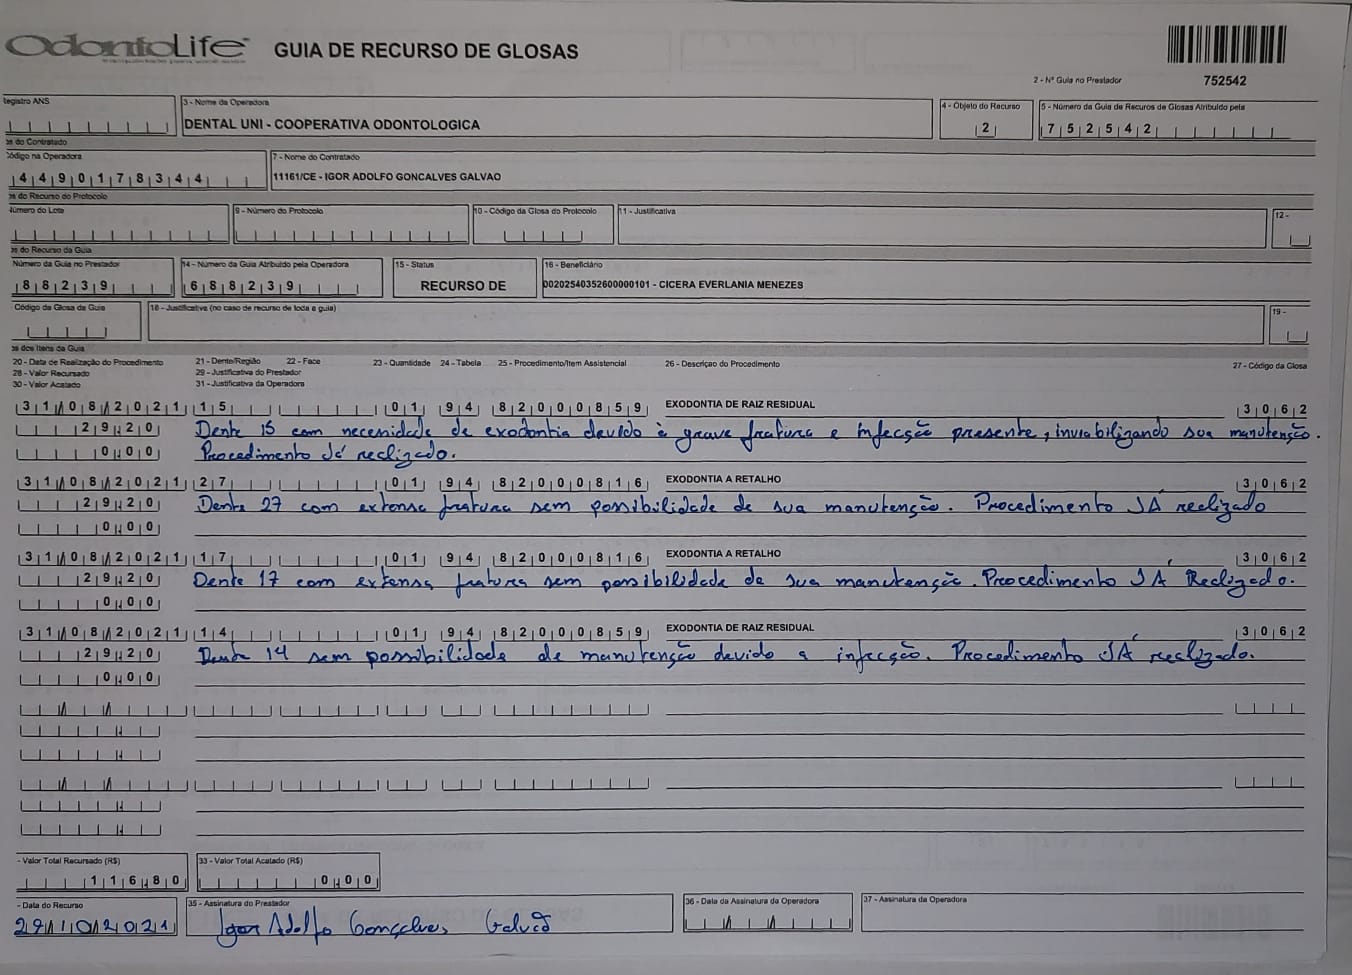 OdontoLife GUIA DE RECURSO DE GLOSAS
2 - Nº Guia no Prestador 752542
Registro ANS
3 - Nome da Operadora
DENTAL UNI - COOPERATIVA ODONTOLOGICA
4 - Objeto do Recurso
2
5 - Número da Guia de Recuros de Glosas Atribuído pela
752542
os do Contratado
Código na Operadora
44901178344
7 - Nome do Contratado
11161/CE - IGOR ADOLFO GONCALVES GALVAO
os do Recurso do Protocolo
Número do Lote
9 - Número do Protocolo
10 - Código da Glosa do Protocolo
11 - Justificativa
12 -
os do Recurso da Guia
Número da Guia no Prestador
88239
14 - Número da Guia Atribuído pela Operadora
688239
15 - Status
RECURSO DE
16 - Beneficiário
00202540352600000101 - CICERA EVERLANIA MENEZES
Código da Glosa da Guia
18 - Justificativa (no caso de recurso de toda a guia)
19 -
os dos Itens da Guia
20 - Data de Realização do Procedimento 21 - Dente/Região 22 - Face 23 - Quantidade 24 - Tabela 25 - Procedimento/Item Assistencial 26 - Descriçao do Procedimento 27 - Código da Glosa
28 - Valor Recursado 29 - Justificativa do Prestador
30 - Valor Acatado 31 - Justificativa da Operadora
31/08/2021 15 01 94 82000859 EXODONTIA DE RAIZ RESIDUAL 3062
29,20 Dente 15 com necessidade de exodontia devido à grave fratura e infecsão presente, inviabilizando sua manutenção.
0,00 Procedimento Já realizado.
31/08/2021 27 01 94 82000816 EXODONTIA A RETALHO 3062
29,20 Dente 27 com extensa fratura sem possibilidade de sua manutenção. Procedimento JÁ realizado
0,00
31/08/2021 17 01 94 82000816 EXODONTIA A RETALHO 3062
29,20 Dente 17 com extensa fratura sem possibilidade de sua manutenção. Procedimento JÁ Realizado.
0,00
31/08/2021 14 01 94 82000859 EXODONTIA DE RAIZ RESIDUAL 3062
29,20 Dente 14 sem possibilidade de manutenção devido a infecção. Procedimento JÁ realizado.
0,00
- Valor Total Recursado (R$)
116,80
33 - Valor Total Acatado (R$)
0,00
- Data do Recurso
29/10/2021
35 - Assinatura do Prestador
Igor Adolfo Gonçalves Galvão
36 - Data da Assinatura da Operadora
37 - Assinatura da Operadora